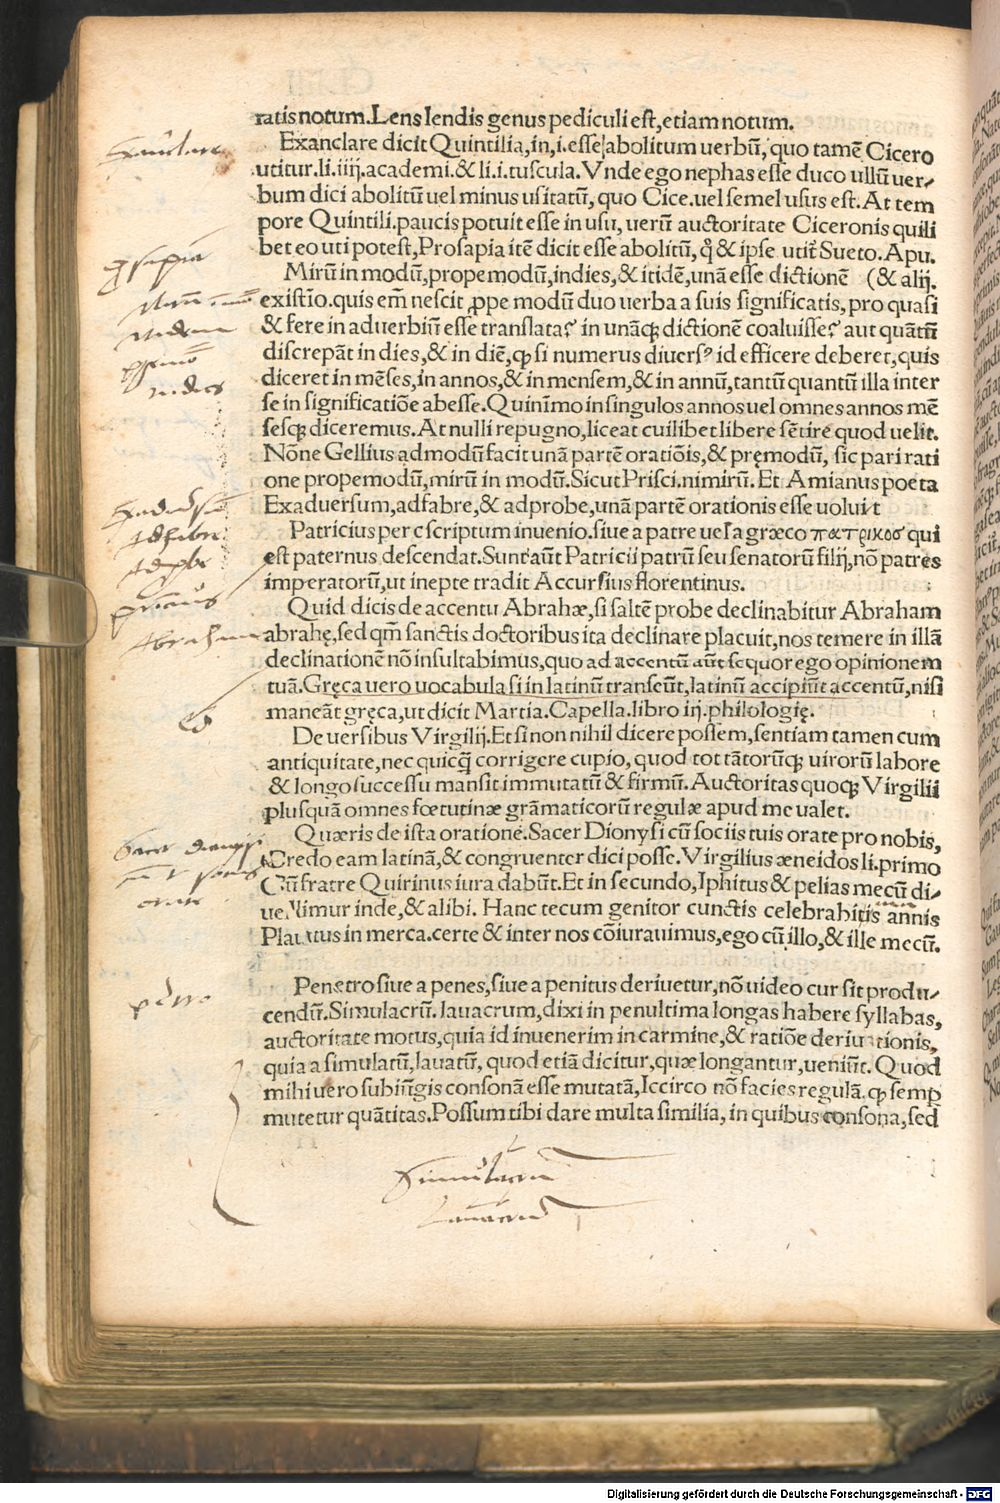 ratis notum. Lens lendis genus pediculi est, etiam notum.
Exanclare dicit Quintilia, in, i. esse abolitum uerbũ, quo tamẽ Cicero
utitur. li. iiij. academi. & li. i. tuscula. Vnde ego nephas esse duco ullũ uer-
bum dici abolitũ uel minus usitatũ, quo Cice. uel semel usus est. At tem
pore Quintili. paucis potuit esse in usu, uerũ auctoritate Ciceronis quili
bet eo uti potest, Prosapia itẽ dicit esse abolitũ, ꝙ & ipse utiť Sueto. Apu.
Mirũ in modũ, prope modũ, indies, & itidẽ, unã esse dictionẽ (& alij.
existĩo. quis em̃ nescit ꝓpe modũ duo uerba a suis significatis, pro quasi
& fere in aduerbiũ esse translata? in unãqꝫ dictionẽ coaluisse? aut quãtũ
discrepãt in dies, & in diẽ, ꝙ si numerus diuersꝰ id efficere deberet, quis
diceret in mẽses, in annos, & in mensem, & in annũ, tantũ quantũ illa inter
se in significatiõe abesse. Quinĩmo in singulos annos uel omnes annos mẽ
sesqꝫ diceremus. At nulli repugno, liceat cuilibet libere sẽtire quod uelit.
Nõne Gellius admodũ facit unã partẽ oratiõis, & pręmodũ, sic pari rati
one propemodũ, mirũ in modũ. Sicut Prisci. nimirũ. Et Amianus poeta
Exaduersum, adfabre, & adprobe, unã partẽ orationis esse uoluit
Patricius per c scriptum inuenio. siue a patre uel a græco πατρικοσ qui
est paternus descendat. Sunt aũt Patricii patrũ seu senatorũ filij, nõ patres
imperatorũ, ut inepte tradit Accursius florentinus.
Quid dicis de accentu Abrahæ, si saltẽ probe declinabitur Abraham
abrahę, sed qm̃ sanctis doctoribus ita declinare placuit, nos temere in illã
declinationẽ nõ insultabimus, quo ad accentũ aũt sequor ego opinionem
tuã. Gręca uero uocabula si in latinũ transeũt, latinũ accipiũt accentũ, nisi
maneãt gręca, ut dicit Martia. Capella. libro iij. philologię.
De uersibus Virgilij. Et si non nihil dicere possem, sentiam tamen cum
antiquitate, nec quicq̃ corrigere cupio, quod tot tãtorũqꝫ uirorũ labore
& longo successu mansit immutatũ & firmũ. Auctoritas quoqꝫ Virgilii
plus quã omnes fœtutinæ grãmaticorũ regulæ apud me ualet.
Quæris de ista oratione. Sacer Dionysi cũ sociis tuis orate pro nobis,
Credo eam latinã, & congruenter dici posse. Virgilius æneidos li. primo
Cũ fratre Quirinus iura dabũt. Et in secundo, Iphitus & pelias mecũ di-
uellimur inde, & alibi. Hanc tecum genitor cunctis celebrabitis annis
Plautus in merca. certe & inter nos cõiurauimus, ego cũ illo, & ille mecũ.
Penetro siue a penes, siue a penitus deriuetur, nõ uideo cur sit produ-
cendũ. Simulacrũ. lauacrum, dixi in penultima longas habere syllabas,
auctoritate motus, quia id inuenerim in carmine, & ratiõe deriuationis,
quia a simulatũ, lauatũ, quod etiã dicitur, quæ longantur, ueniũt. Quod
mihi uero subiũgis consonã esse mutatã, Iccirco nõ facies regulã, ꝙ semp
mutetur quãtitas. Possum tibi dare multa similia, in quibus consona, sed
Exanclare
prosapia
indies
adfabre
patricius
Abraham
Sacer dionysi
Simulacrũ
Lauacrũ
Digitalisierung gefördert durch die Deutsche Forschungsgemeinschaft - DFG